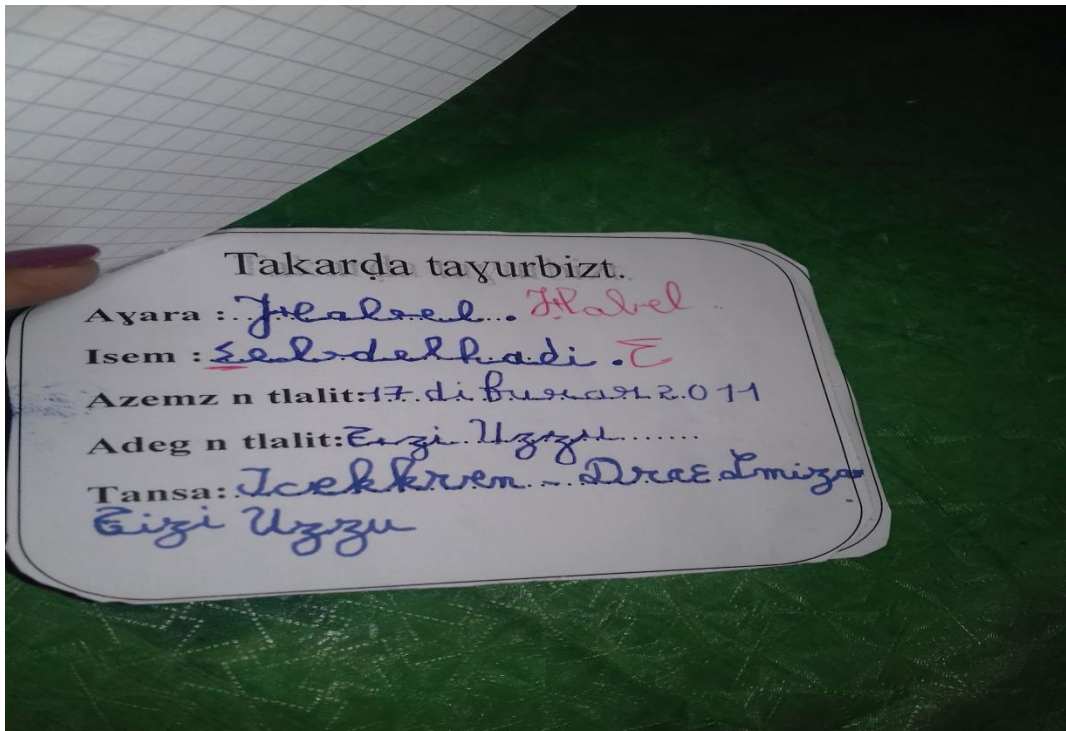 Takarḍa taɣurbizt.
Aɣara : Ḥabel . Ḥabel
Isem : Ɛebdelhadi . ح
Azemz n tlalit: 17 di furar 2011
Adeg n tlalit: Tizi Uzzu
Tansa: Icekkren - Draɛ Lmizan
Tizi Uzzu